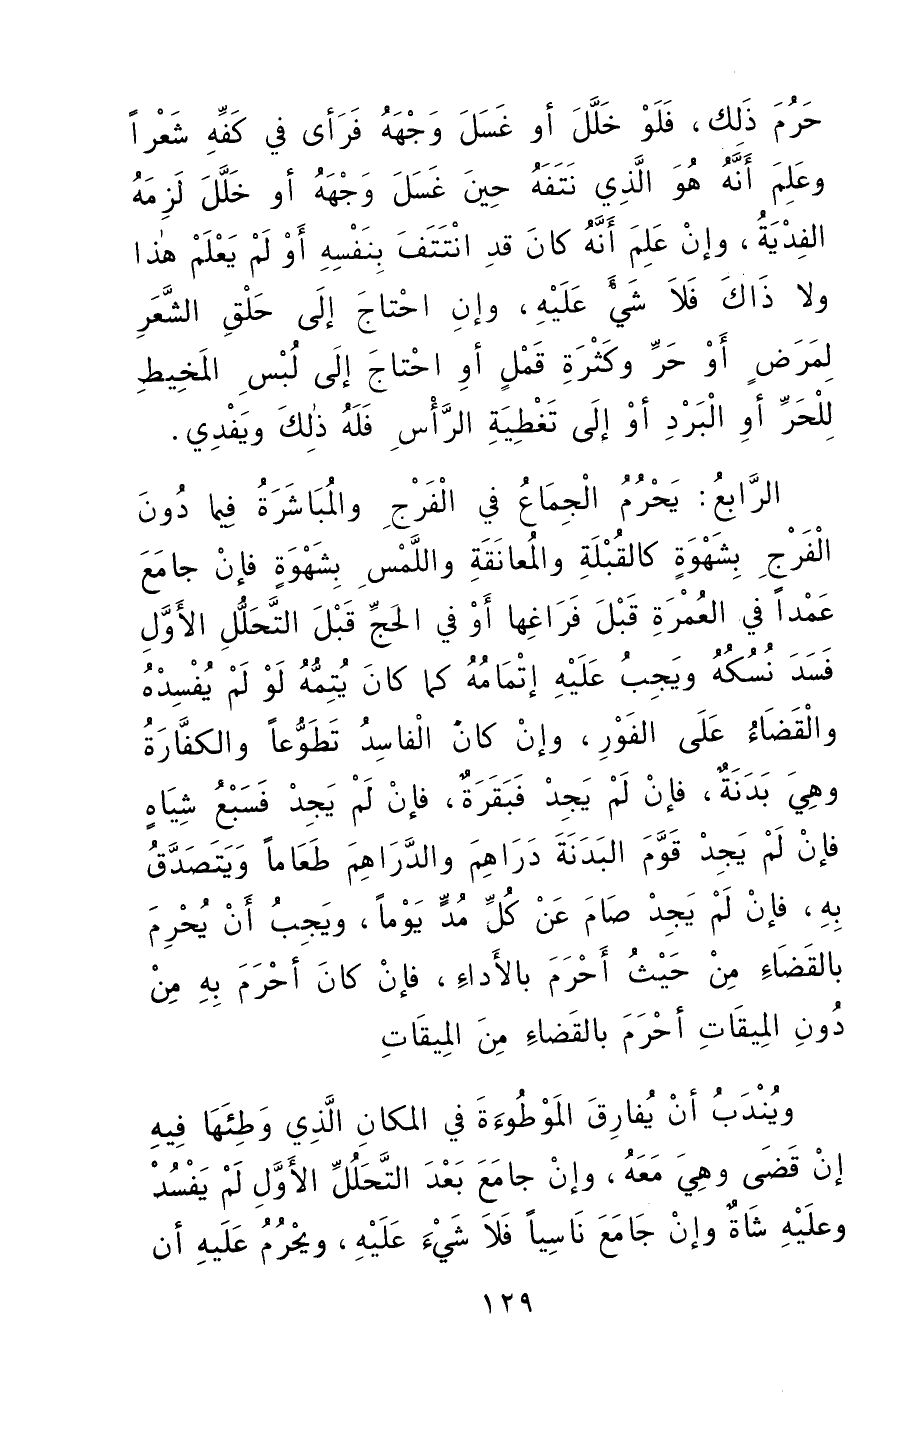 حَرُمَ ذَلِك، فَلَوْ خَلَّلَ أو غَسَلَ وَجْهَهُ فَرَأى في كَفِّهِ شَعْراً
وعَلِمَ أَنَّهُ هُوَ الَّذِي نَتَفَهُ حِينَ غَسَلَ وَجْهَهُ أو خَلَّلَ لَزِمَهُ
الفِدْيَةُ، وإنْ عَلِمَ أَنَّهُ كانَ قدِ انْتَتَفَ بِنَفْسِهِ أَوْ لَمْ يَعْلَمْ هٰذا
ولا ذَاكَ فَلاَ شَيْءَ عَلَيْهِ، وإنِ احْتاجَ إلَى حَلْقِ الشَّعَرِ
لِمَرَضٍ أَوْ حَرٍّ وكَثْرَةِ قَمْلٍ أوِ احْتاجَ إلَى لُبْسِ المَخِيطِ
لِلْحَرِّ أوِ الْبَرْدِ أوْ إلَى تَغْطِيَةِ الرَّأْسِ فَلَهُ ذٰلِكَ ويَفْدِي.
الرَّابعُ: يَحْرُمُ الْجِمَاعُ في الْفَرْجِ والمُبَاشَرَةُ فِيما دُونَ
الْفَرْجِ بِشَهْوَةٍ كالقُبْلَةِ والمُعانَقَةِ واللَّمْسِ بِشَهْوَةٍ فإنْ جامَعَ
عَمْداً في العُمْرَةِ قَبْلَ فَرَاغِها أوْ في الحَجِّ قَبْلَ التَّحَلُّلِ الأَوَّلِ
فَسَدَ نُسُكُهُ ويَجِبُ عَلَيْهِ إتْمَامُهُ كما كانَ يُتِمُّهُ لَوْ لَمْ يُفْسِدْهُ
والْقَضَاءُ عَلَى الفَوْرِ، وإنْ كانَ الْفاسِدُ تَطَوُّعاً والكفَّارَةُ
وهِيَ بَدَنَةٌ، فإنْ لَمْ يَجِدْ فَبَقَرَةٌ، فإنْ لَمْ يَجِدْ فَسَبْعُ شِيَاهٍ
فإنْ لَمْ يَجِدْ قَوَّمَ البَدَنَةَ دَرَاهِمَ والدَّرَاهِمَ طَعَاماً وَيَتَصَدَّقُ
بِهِ، فإنْ لَمْ يَجِدْ صَامَ عَنْ كُلِّ مُدٍّ يَوْماً، ويَجِبُ أَنْ يُحْرِمَ
بالقَضَاءِ مِنْ حَيْثُ أَحْرَمَ بالأَداءِ، فإنْ كانَ أحْرَمَ بِهِ مِنْ
دُونِ المِيقَاتِ أحْرَمَ بالقَضاءِ مِنَ المِيقَاتِ
ويُنْدَبُ أنْ يُفارِقَ المَوْطُوءَةَ في المكانِ الَّذِي وَطِئَهَا فِيهِ
إنْ قَضَى وهِيَ مَعَهُ، وإنْ جامَعَ بَعْدَ التَّحَلُلِّ الأَوَّلِ لَمْ يَفْسُدْ
وعلَيْهِ شَاةٌ وإنْ جَامَعَ نَاسِياً فَلاَ شَيْءَ عَلَيْهِ، ويحْرُمُ عَلَيهِ أن
١٢٩